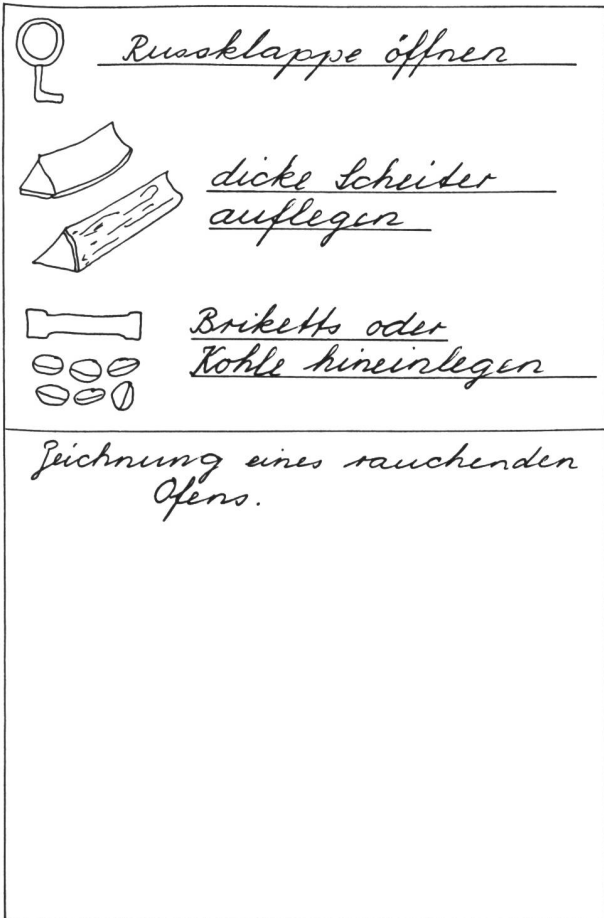 Russklappe öffnen
dicke Scheiter
auflegen
Briketts oder
Kohle hineinlegen
Zeichnung eines rauchenden
Ofens.